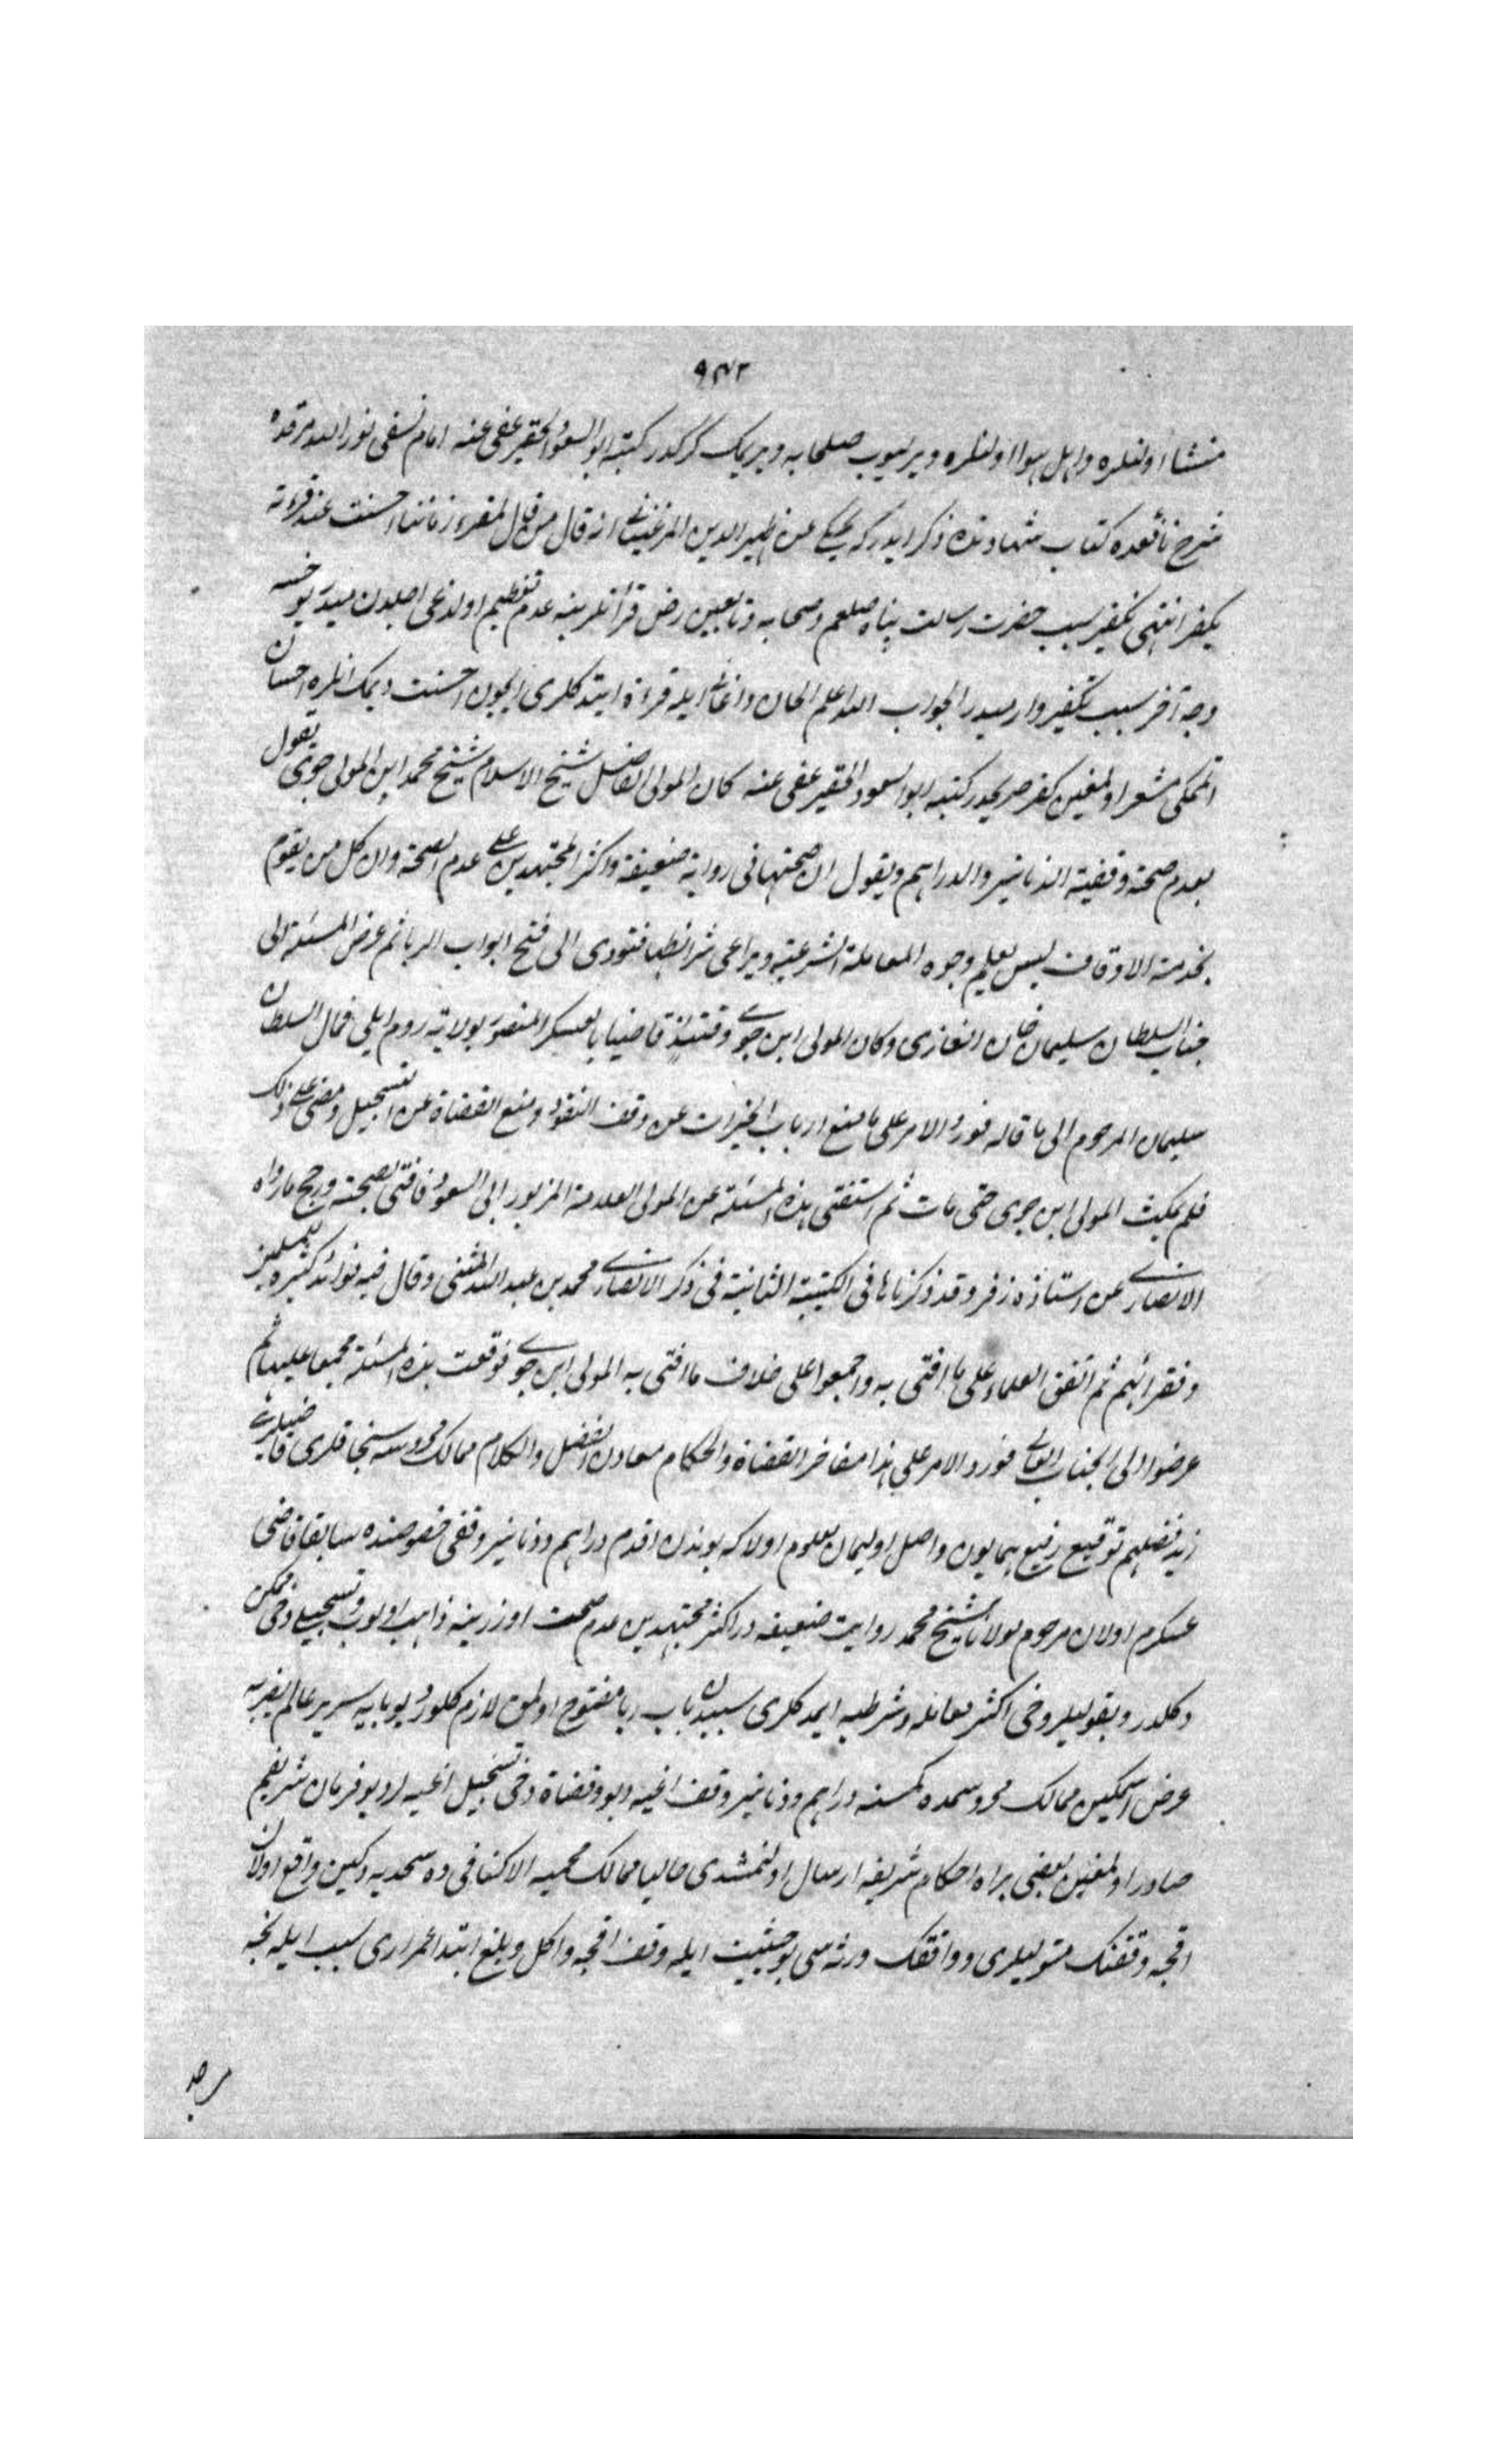 ٩٤٢
منشا اولنلره واهل هوا اولنلره ويرليوب صلحايه ويريمك كركدر كتبه ابو السعود الحقير عفى عنه امام نسفى نور الله مرقده
شرح نافعده كتاب شهادتده ذكر ايدركه يحكى عن ظهير الدين المرغينانى انه قال من قال لمقرء زماننا احسنت عند قرءته
يكفر انتهى تكفير سبب حضرت رسالت پناه صلعم وصحابه وتابعين رضى قرأتلرينه عدم تعظيم اولدغى اجلدن ميدر يوخسه
وجه آخر سبب تكفير وارميدر الجواب الله اعلم الحان واغانى ايله قراءة ايتدكلرى ايچون احسنت ديمك انلره احسان
اتمكى مشعر اولمغين كفر صريحدر كتبه ابو السعود الحقير عفى عنه كان المولى الفاضل شيخ الاسلام شيخ محمد ابن المولى جوى يقول
بعدم صحة وقفية الدنانير والدراهم ويقول ان صحتها فى رواية ضعيفة واكثر المجتهدين على عدم الصحة وان كل من يقوم
بخدمة الاوقاف ليس يعلم وجوه المعاملة الشرعية ويراعى شرائطها فتودى الى فتح ابواب الربا ثم عرض المسئلة الى
جناب السلطان سليمان خان الغازى وكان المولى ابن جوى وقتئذ قاضيا بالعسكر المنصور بولاية روم ايلى فمال السلطان
سليمان المرحوم الى ما قاله فورد الامر على ما يمنع ارباب الخيرات عن وقف النقود ومنع القضاة عن التسجيل ومضى على ذلك
فلم يمكث المولى ابن جوى حتى مات ثم استفتى هذه المسئلة عن المولى العلامة المزبور ابى السعود فافتى بصحته ورجح ما رواه
الانصارى عن استاذه زفر وقد ذكرناها فى الكتيبة الثانية فى ذكر الانصارى محمد بن عبد الله المثنى وقال فيه فوائد كثيرة للمسلمين
وفقرائهم ثم اتفق العلماء على ما افتى به واجمعوا على خلاف ما افتى به المولى ابن جوى فوقعت هذه المسئلة مجمعا عليها ثم
عرضوا الى الجناب العالى فورد الامر على هذا مفاخر القضاة والحكام معادن الفضل والكلام ممالك محروسه سنجاقلرى قاضيلرى
زيد فضلهم توقيع رفيع همايون واصل اوليجان معلوم اولاكه بوندن اقدم دراهم ودنانير وقفى خصوصنده سابقا قاضى
عسكرم اولان مرحوم مولانا شيخ محمد روايت ضعيفه در اكثر مجتهدين عدم صحت اوزرينه ذاهب اولوب وتسجيلى دخى ممكن
دكلدر ومتوليلر دخى اكثر معامله وشرطيه ايمدكلرى سبيدن باب ربا مفتوح اولمق لازم كلور ديو پايه سرير عالم پذيره
عرض اتمكين ممالك محروسمده كمسنه دراهم ودنانير وقف اتميه ديو وقضاة دخى تسجيل اتميه لر ديو فرمان شريفم
صادر اولمغين بعضى يراه احكام شريفه ارسال اولنمشدى حاليا ممالك محميه الاكنافى ده سمديه دكين واقع اولان
اقچه وقفنك متوليلرى وواقفك ورثه سى بو حيثيت ايله وقف اقچه واكل وبلع ابتدا سبب ايله نچه